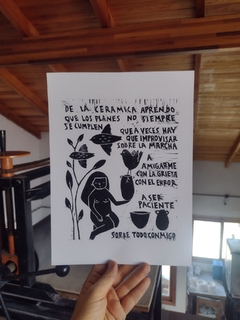 DE LA CERAMICA APRENDO
QUE LOS PLANES NO SIEMPRE
SE CUMPLEN
QUE A VECES HAY
QUE IMPROVISAR
SOBRE LA MARCHA
A
AMIGARME
CON LA GRIETA
CON EL ERROR
A SER
PACIENTE
SOBRE TODO CONMIGO